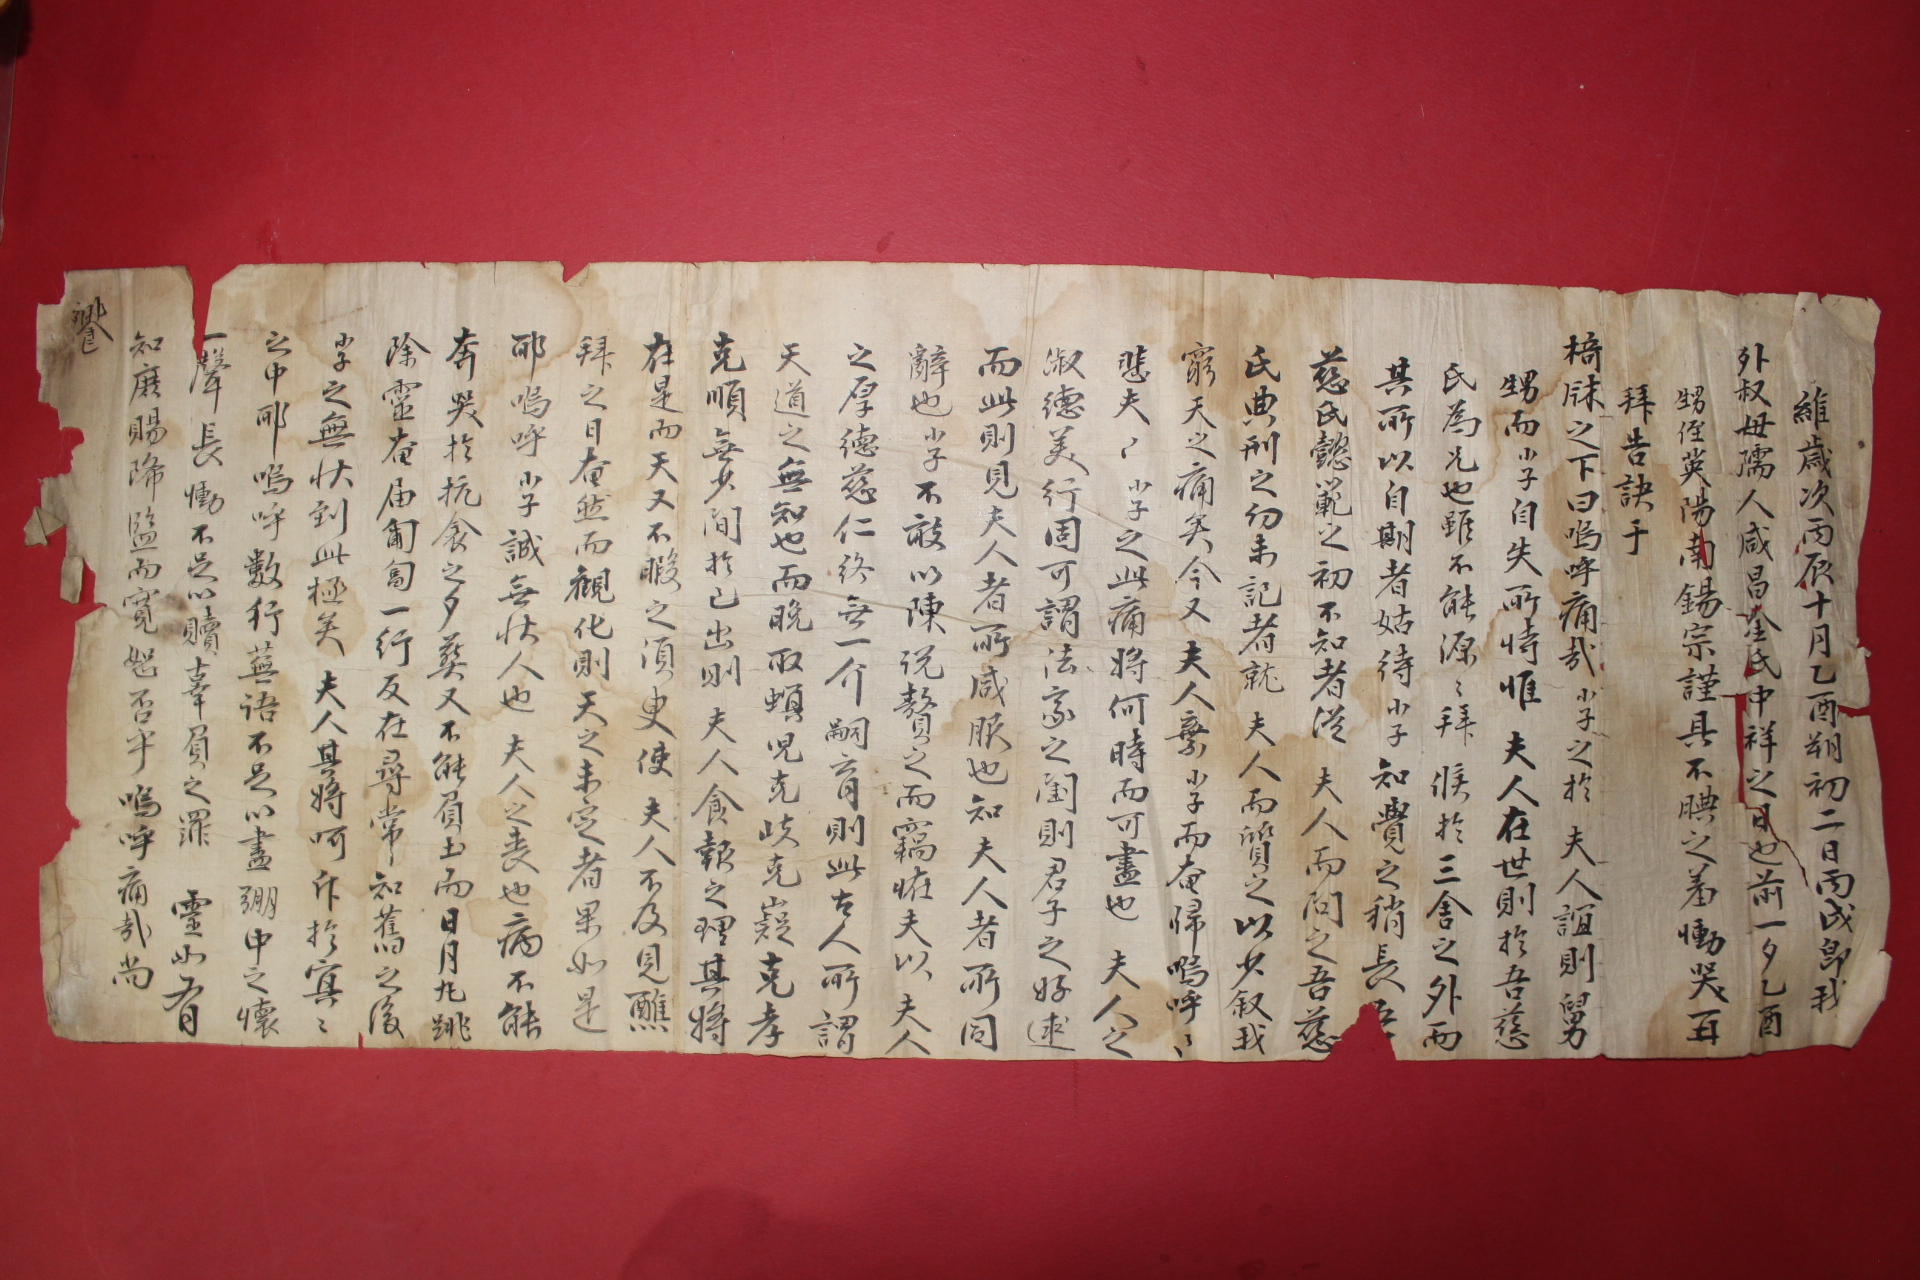 維歲次丙辰十月乙酉朔初二日丙戌卽我
外叔母孺人咸昌金氏中祥之日也前一夕乙酉
甥侄英陽南錫宗謹具不腆之羞慟哭再
拜告訣于
椅牀之下曰嗚呼痛哉小子之於 夫人誼則舅
甥而小子自失所恃惟 夫人在世則於吾慈
氏爲兄也雖不能源〻拜候於三舍之外而
其所以自期者姑待小子知覺之稍長
慈氏懿範之初不知者從 夫人而問之吾慈
氏典刑之幼未記者就 夫人而質之以少叙我
窮天之痛矣今又 夫人棄小子而奄歸嗚呼〻
悲夫〻小子之此痛將何時而可盡也 夫人之
淑德美行固可謂法家之閨則君子之好逑
而此則見夫人者所咸服也知夫人者所同
辭也小子不敢以陳說贅之而竊惟夫以 夫人
之厚德慈仁終無一介嗣育則此古人所謂
天道之無知也而晩取螟兒克岐克嶷克孝
克順無少間於己出則 夫人食報之理其將
在是而天又不暇之須臾使 夫人不及見醮
拜之日奄然而觀化則天之未定者果如是
耶嗚呼小子誠無狀人也 夫人之喪也病不能
奔哭於抗飧之夕葬又不能負土而日月允跳
除靈奄届匍匐一行反在尋常知舊之後
小子之無狀到此極矣 夫人其將呵斥於冥〻
之中耶嗚呼數行蕪語不足以盡弸中之懷
一聲長慟不足以贖辜負之罪 靈如有
知庶賜降監而寬恕否乎嗚呼痛哉尙
饗